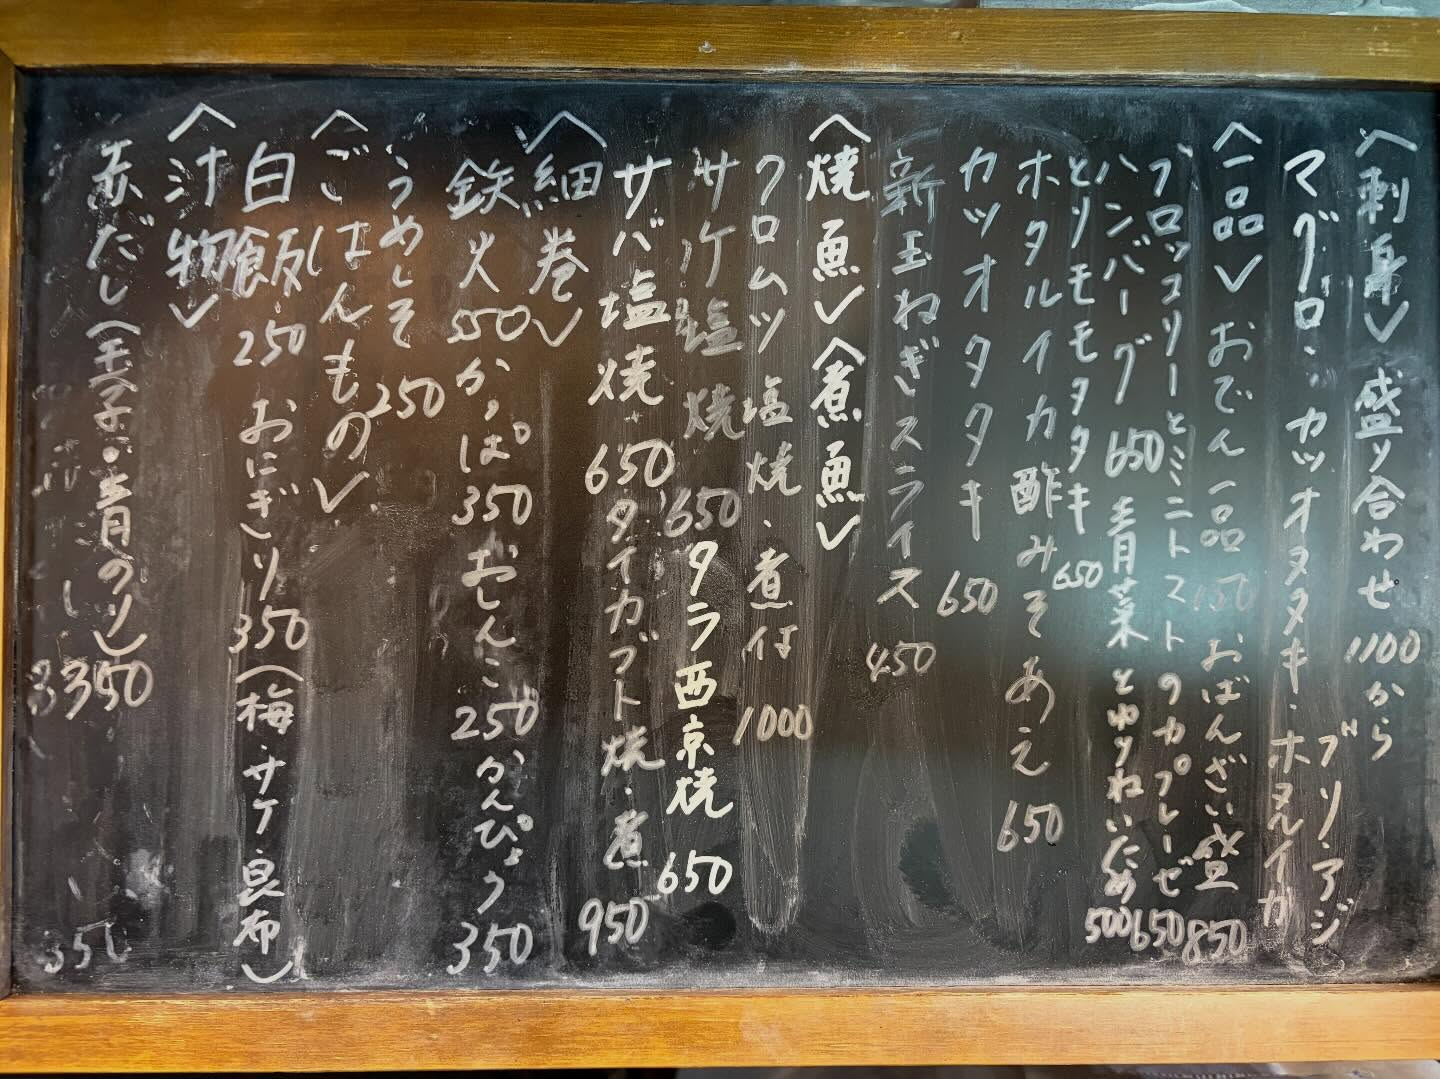 〈刺身〉 盛り合わせ 1100から
マグロ・カツオタタキ・ホタルイカ
ブリ・アジ
〈一品〉 おでん 一品 150 おばんざい盛 850
ブロッコリーとミニトマトのカプレーゼ 650
ハンバーグ 650 青菜とゆりねいため 500
とりモモタタキ 650
ホタルイカ酢みそあえ 650
カツオタタキ 650
新玉ねぎスライス 450
〈焼魚〉〈煮魚〉
クロムツ 塩焼・煮付 1000
サケ塩焼 650 タラ西京焼 650
サバ塩焼 650 タイカブト焼・煮 950
〈細巻〉
鉄火 550 かっぱ 350 おしんこ 250 かんぴょう 350
うめしそ 250
〈ごはんもの〉
白飯 250 おにぎり 350 (梅・サケ・昆布)
〈汁物〉
赤だし(玉子・青のり) 350
350